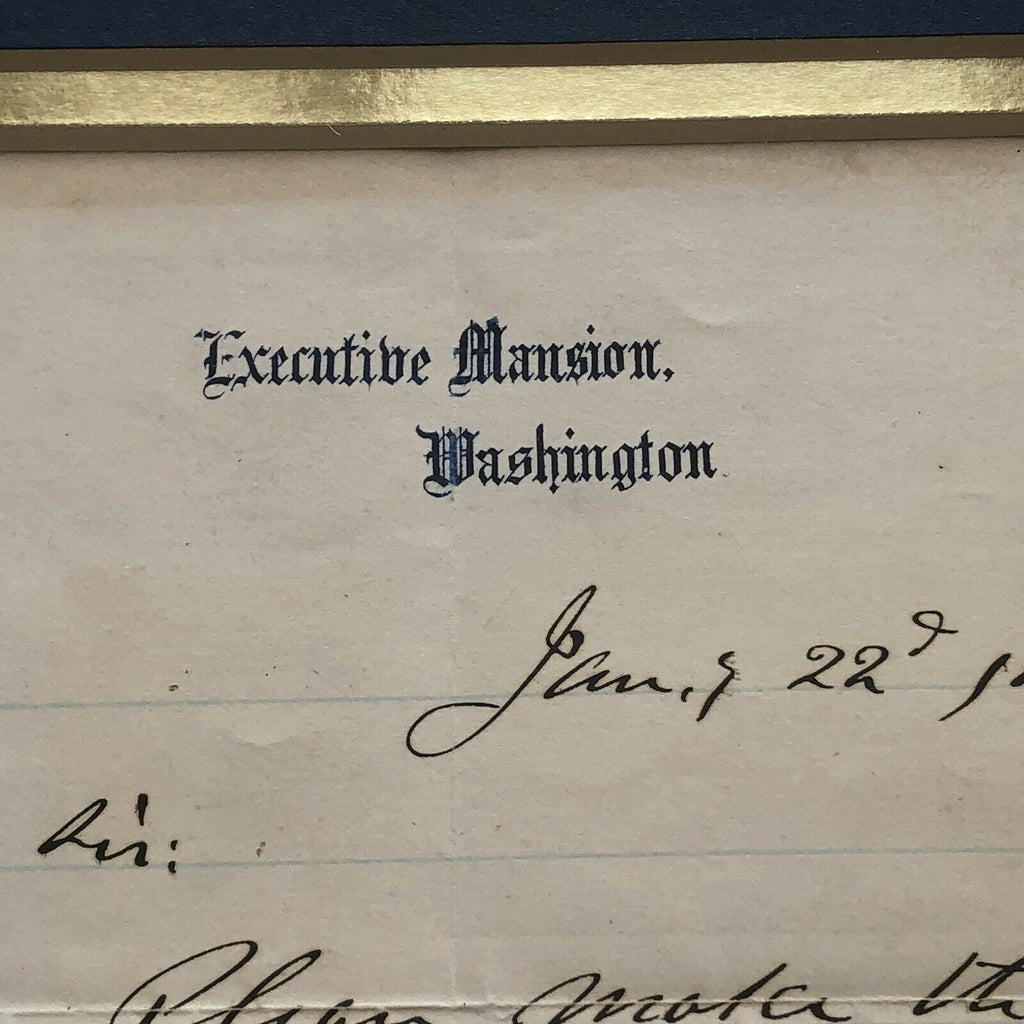 Executive Mansion,
Washington
Jan,y 22d
Sir:
Please make the